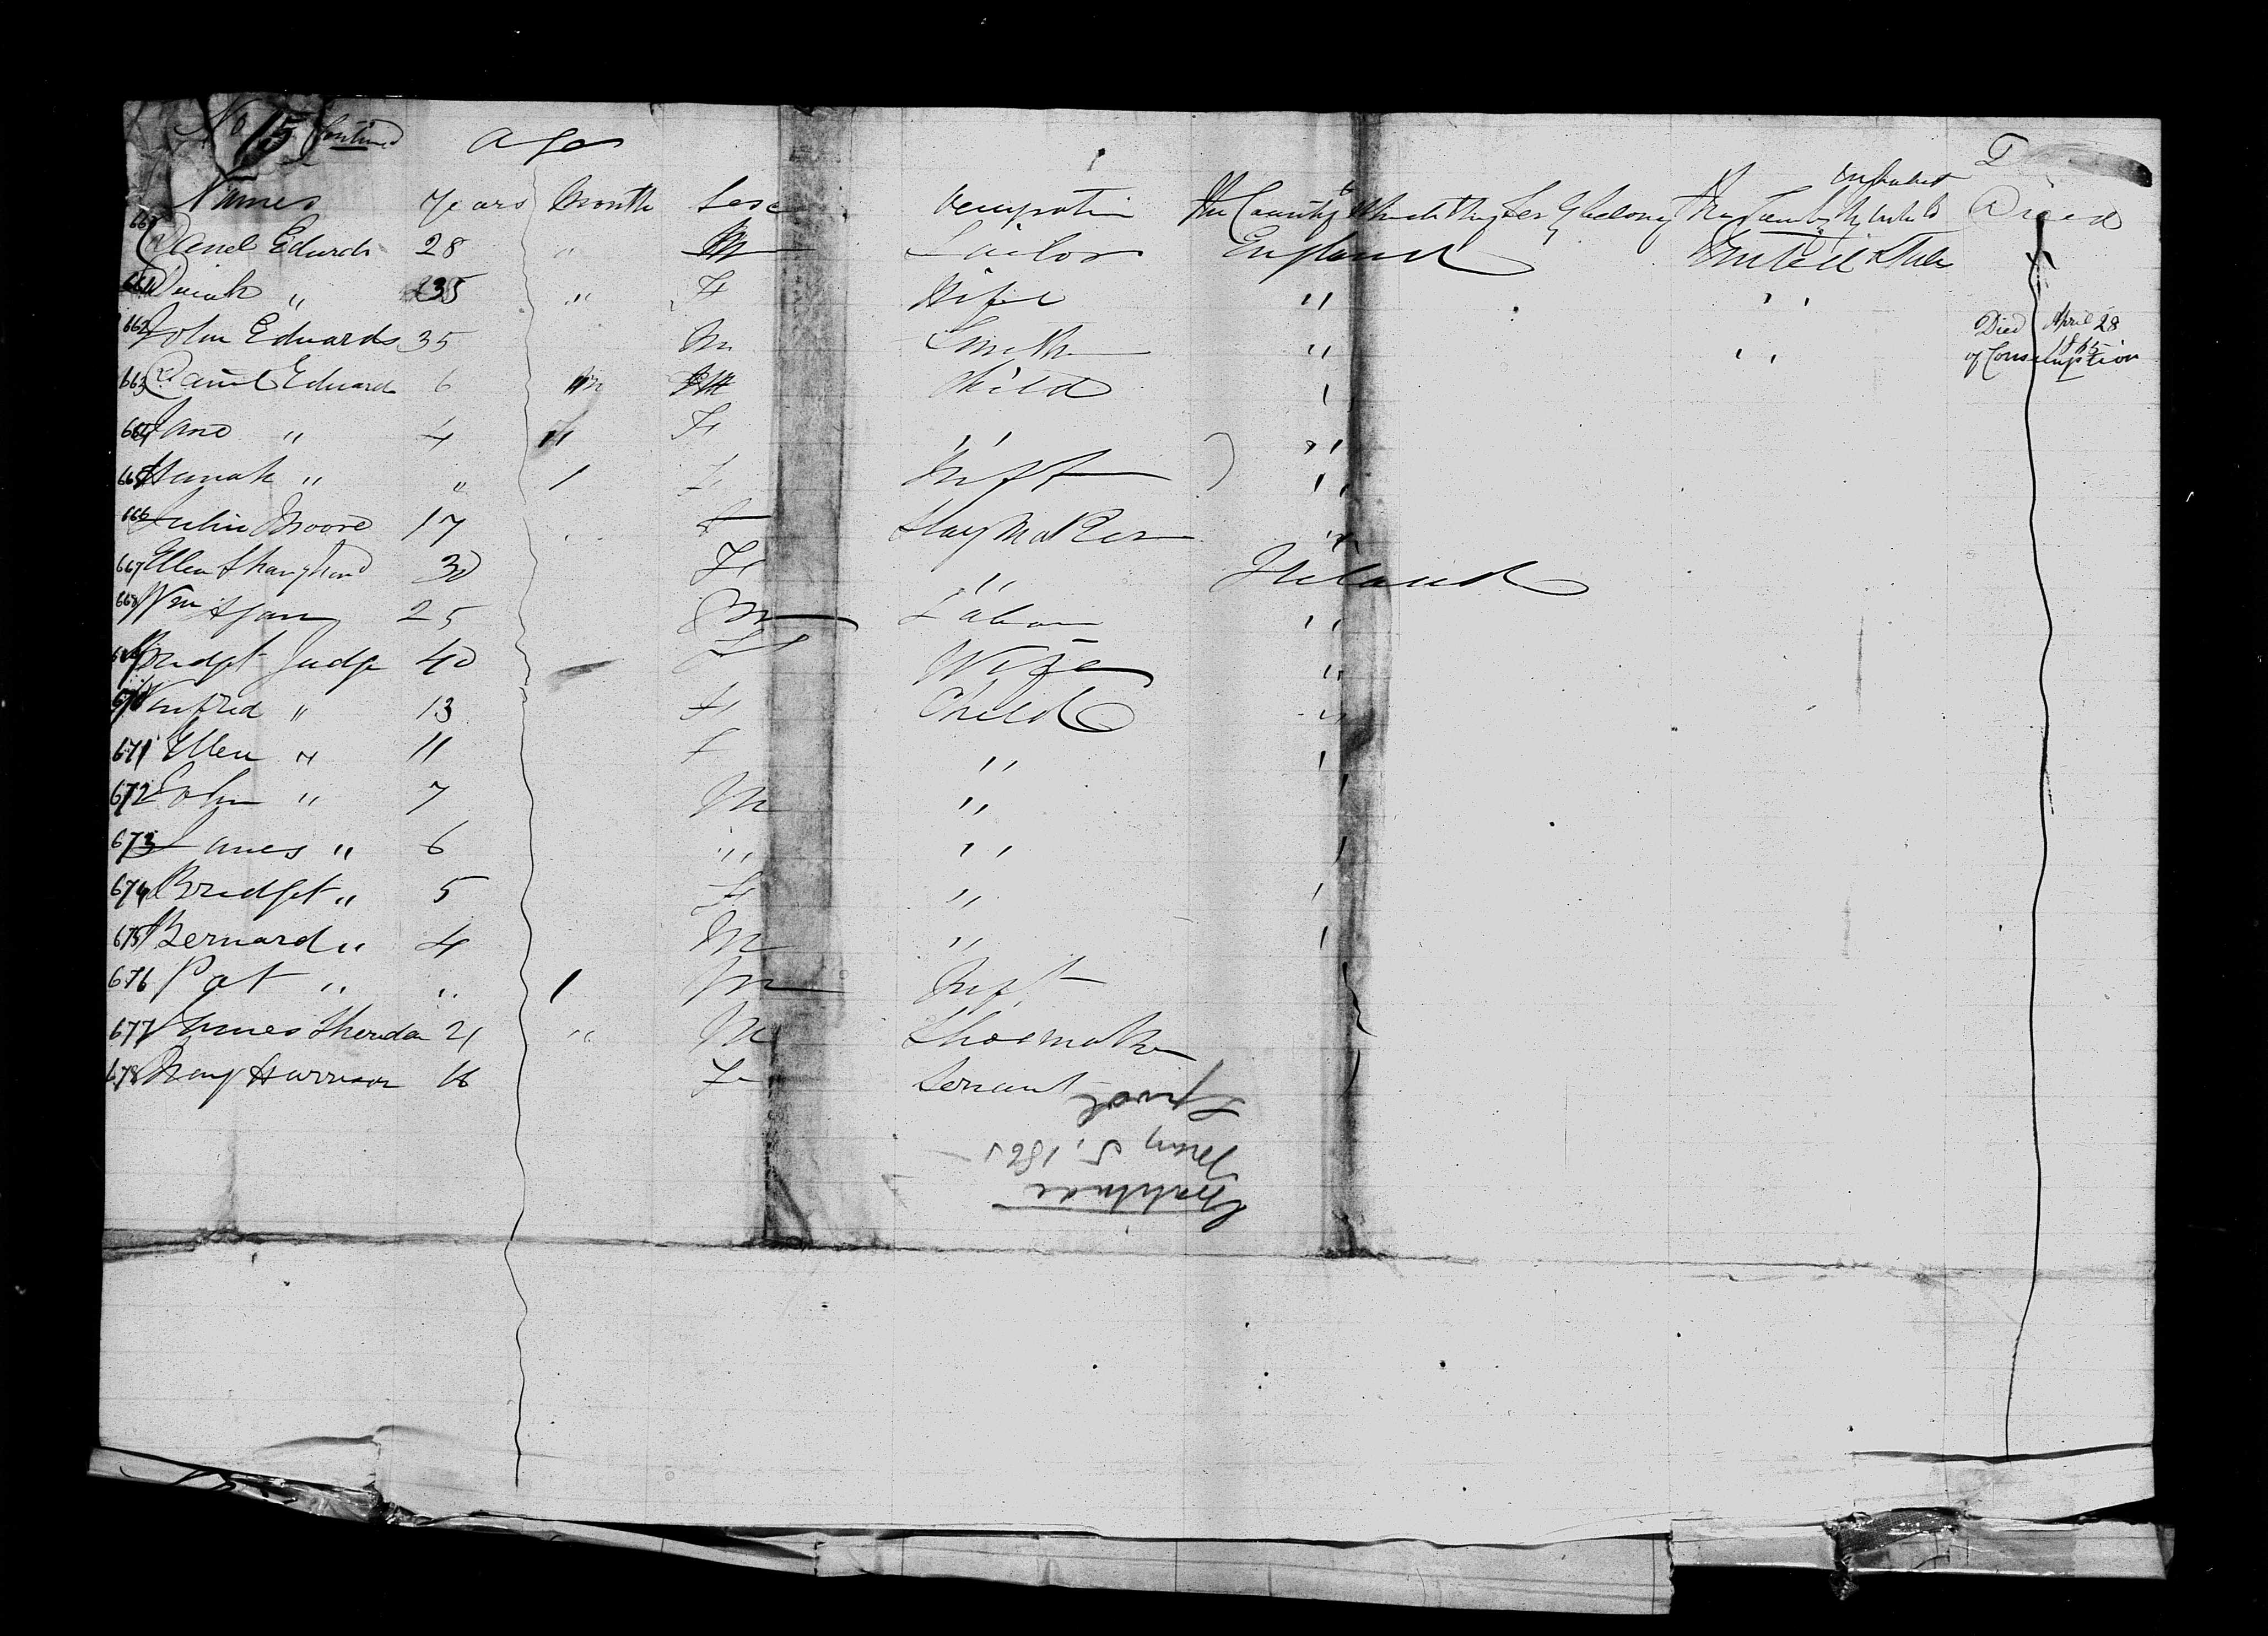 No 15 Continued
Age
Names Years Month Sex Occupation The County to Which they Severly belong The Country Inhabit Died
660 Daniel Edwards 28 " M Sailor England United States
661 " 35 " F Wife " "
662 John Edwards 35 M Smith " " Died April 28
1865
of Consumption
663 Daniel Edward 6 " M Child "
664 Jane " 4 " F " "
665 Hanah " " 1 F Inft "
666 Julia Moore 17 F Stay Maker "
667 Ellen 30 F " Ireland
668 Wm 25 M Labour "
669 Bridget Judge 40 F Wife "
670 Winfred " 13 F Child "
671 Ellen " 11 F " "
672 John " 7 M " "
673 James " 6 " " "
674 Bridget " 5 F " "
675 Bernard " 4 M " "
676 Pat " " 1 M Inft
677 James Sheridan 21 " M Shoemaker
678 Mary Harrison 16 F Servant
May 5, 1865